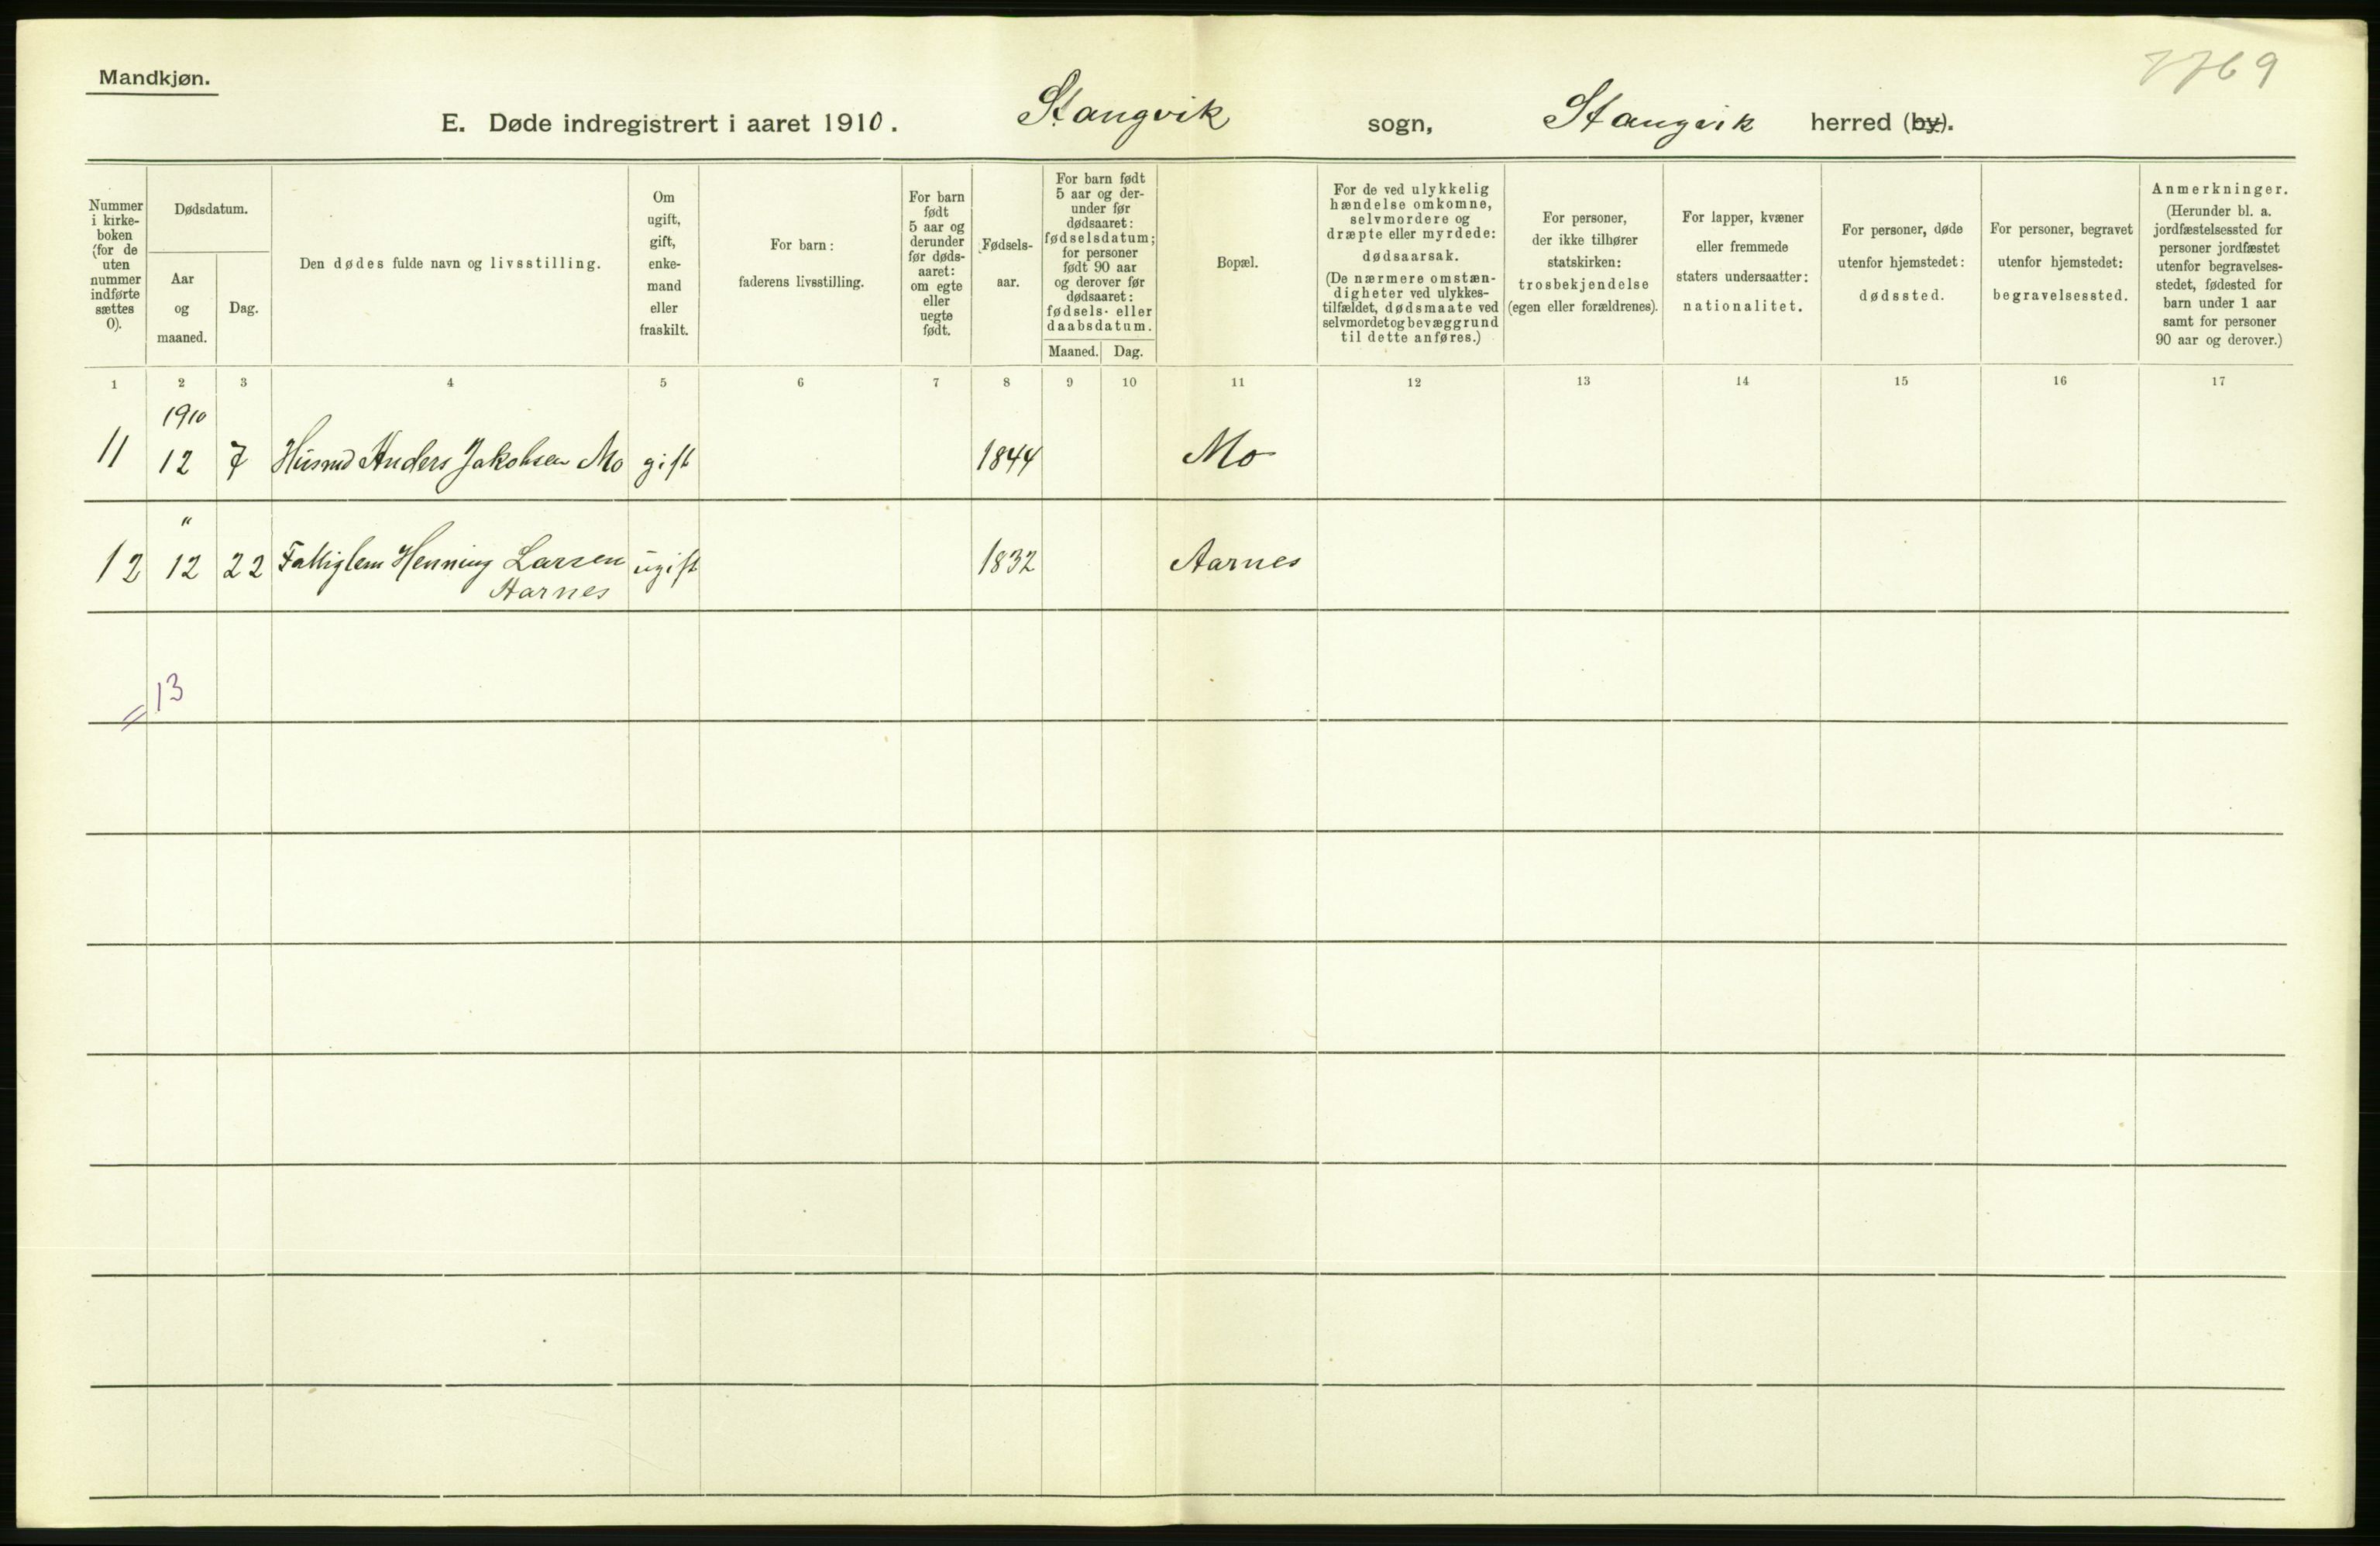 Mandkjøn.
7769
E. Døde indregistrert i aaret 1910. Stangvik sogn, Stangvik herred (by).
Nummer i kirke-boken (for de uten nummer indførte sættes 0).
Dødsdatum.
Aar og maaned.
Dag.
Den dødes fulde navn og livsstilling.
Om ugift, gift, enke-mand eller fraskilt.
For barn: faderens livsstilling.
For barn født 5 aar og derunder før døds-aaret: om egte eller uegte født.
Fødsels-aar.
For barn født 5 aar og der-under før dødsaaret: fødselsdatum; for personer født 90 aar og derover før dødsaaret: fødsels- eller daabsdatum.
Maaned. Dag.
Bopæl.
For de ved ulykkelig hændelse omkomne, selvmordere og dræpte eller myrdede: dødsaarsak. (De nærmere omstæn-digheter ved ulykkes-tilfældet, dødsmaate ved selvmordet og bevæggrund til dette anføres.)
For personer, der ikke tilhører statskirken: trosbekjendelse (egen eller forældrenes).
For lapper, kvæner eller fremmede staters undersaatter: nationalitet.
For personer, døde utenfor hjemstedet: dødssted.
For personer, begravet utenfor hjemstedet: begravelsessted.
Anmerkninger. (Herunder bl. a. jordfæstelsessted for personer jordfæstet utenfor begravelses-stedet, fødested for barn under 1 aar samt for personer 90 aar og derover.)
1 2 3 4 5 6 7 8 9 10 11 12 13 14 15 16 17
1910
11 12 7 Husmd Anders Jakobsen Mo gift 1844 Mo
"
12 12 22 Fattiglem Henning Larsen ugift 1832 Aarnes
Aarnes
13